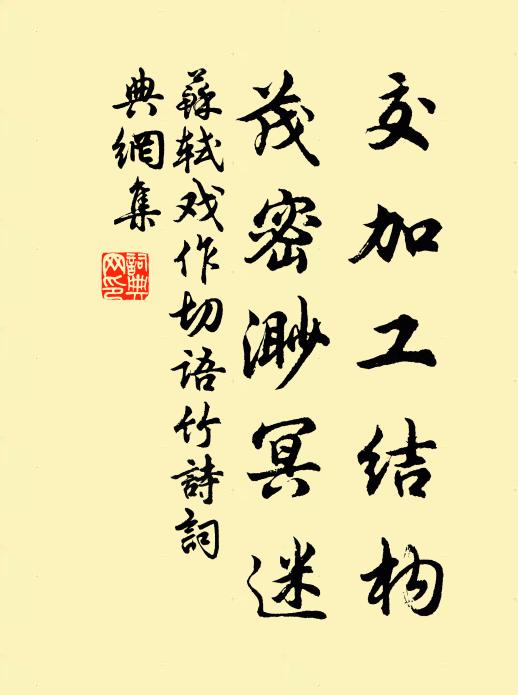 交加工结构
茂密渺冥迷
蘇軾戏作切语竹詩詞
典網集
詞典
网印